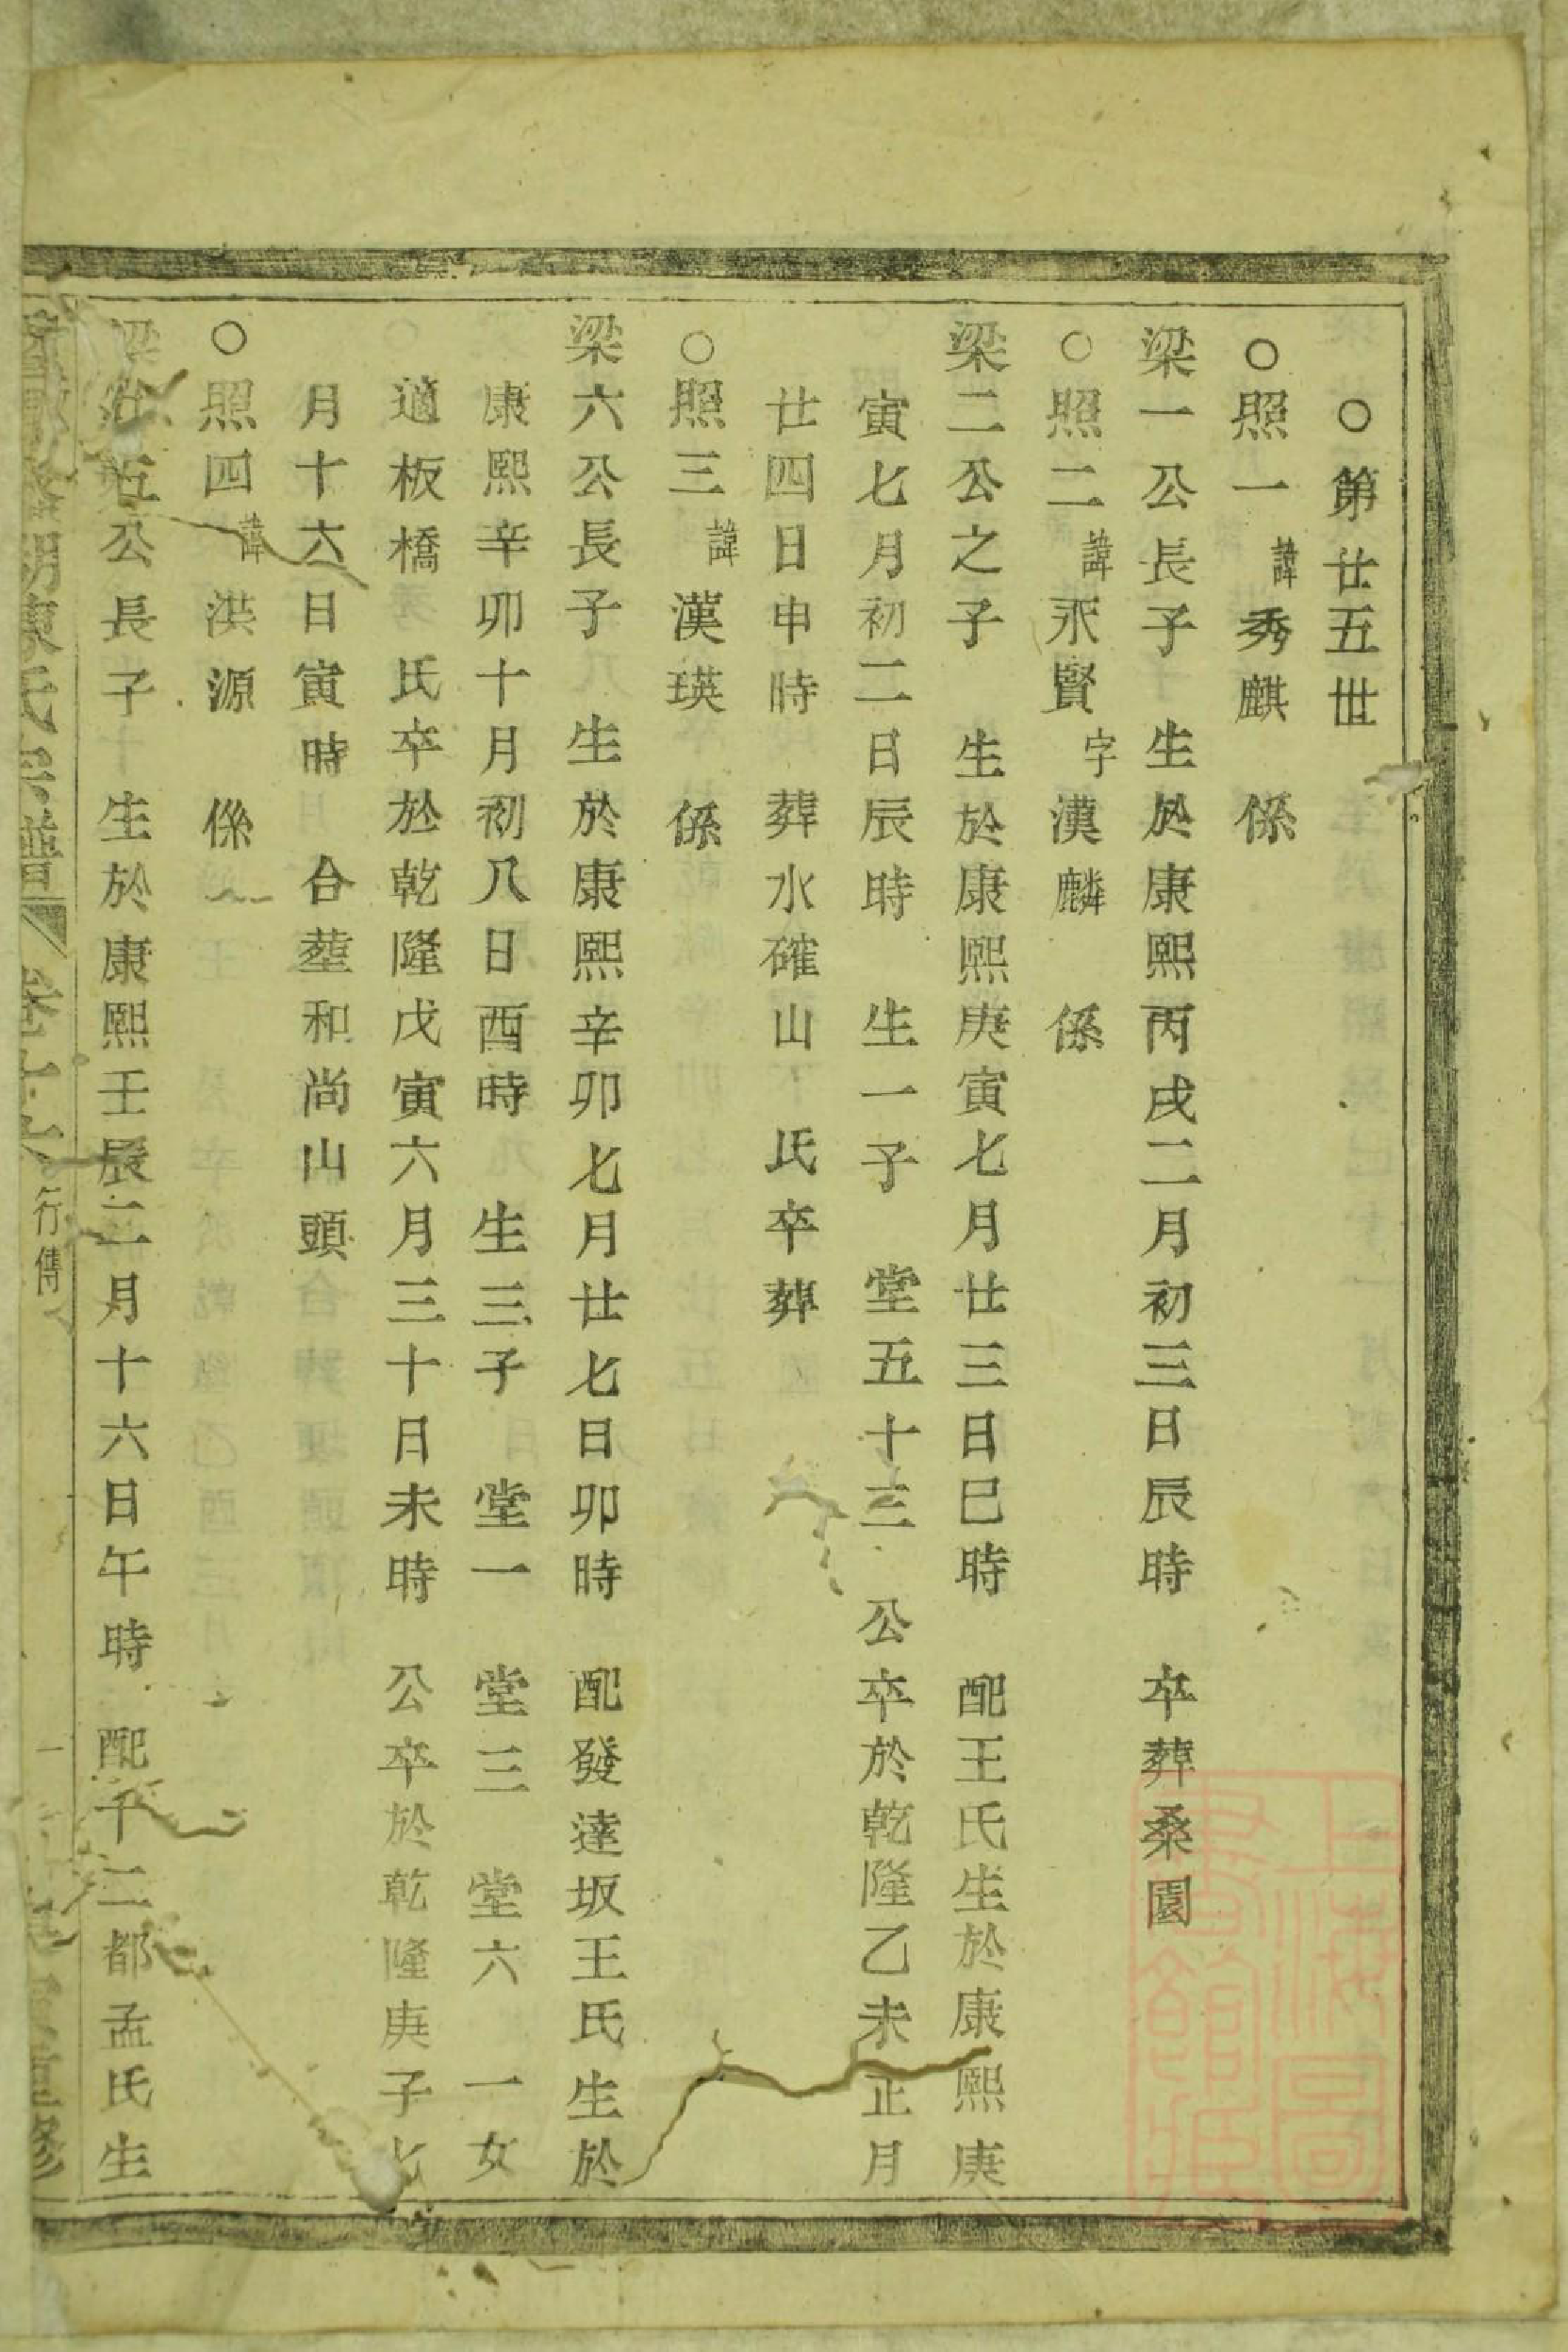 ○第廿五世
○照一諱秀麒 係
梁一公長子 生於康熙丙戌二月初三日辰時 卒葬桑園
○照二諱永賢字漢麟 係
梁二公之子 生於康熙庚寅七月廿三日巳時 配王氏生於康熙庚
寅七月初二日辰時 生一子 堂五十三 公卒於乾隆乙未正月
廿四日申時 葬水確山 氏卒葬
○照三諱漢瑛 係
梁六公長子 生於康熙辛卯七月廿七日卯時 配發達坂王氏生於
康熙辛卯十月初八日酉時 生三子 堂一 堂三 堂六 一女
適板橋 氏卒於乾隆戊寅六月三十日未時 公卒於乾隆庚子七
月十六日寅時 合塟和尚山頭
○照四諱洪源 係
梁 五公長子 生於康熙壬辰二月十六日午時 配十二都孟氏生
陳氏宗譜 卷 行傳 一 重修
上海圖書館藏